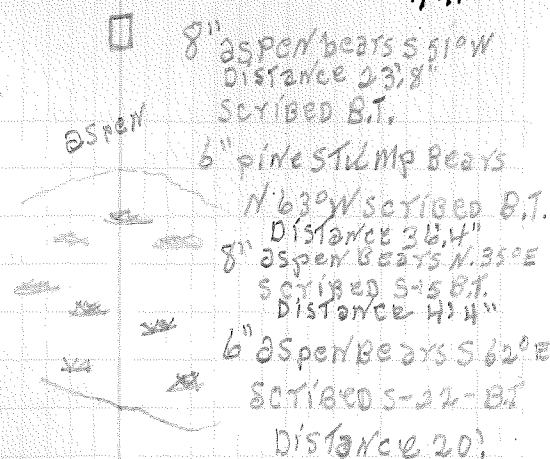 8" aspen bears S 51° W
Distance 23'.8"
Scribed B.T.
aspen
6" pine stump Bears
N. 63° W scribed B.T.
Distance 36'.4"
8" aspen Bears N. 35° E
Scribed S-15 B.T.
Distance 41'.4"
6" aspen Bears S 62° E
Scribed S-22-B.T
Distance 20'.